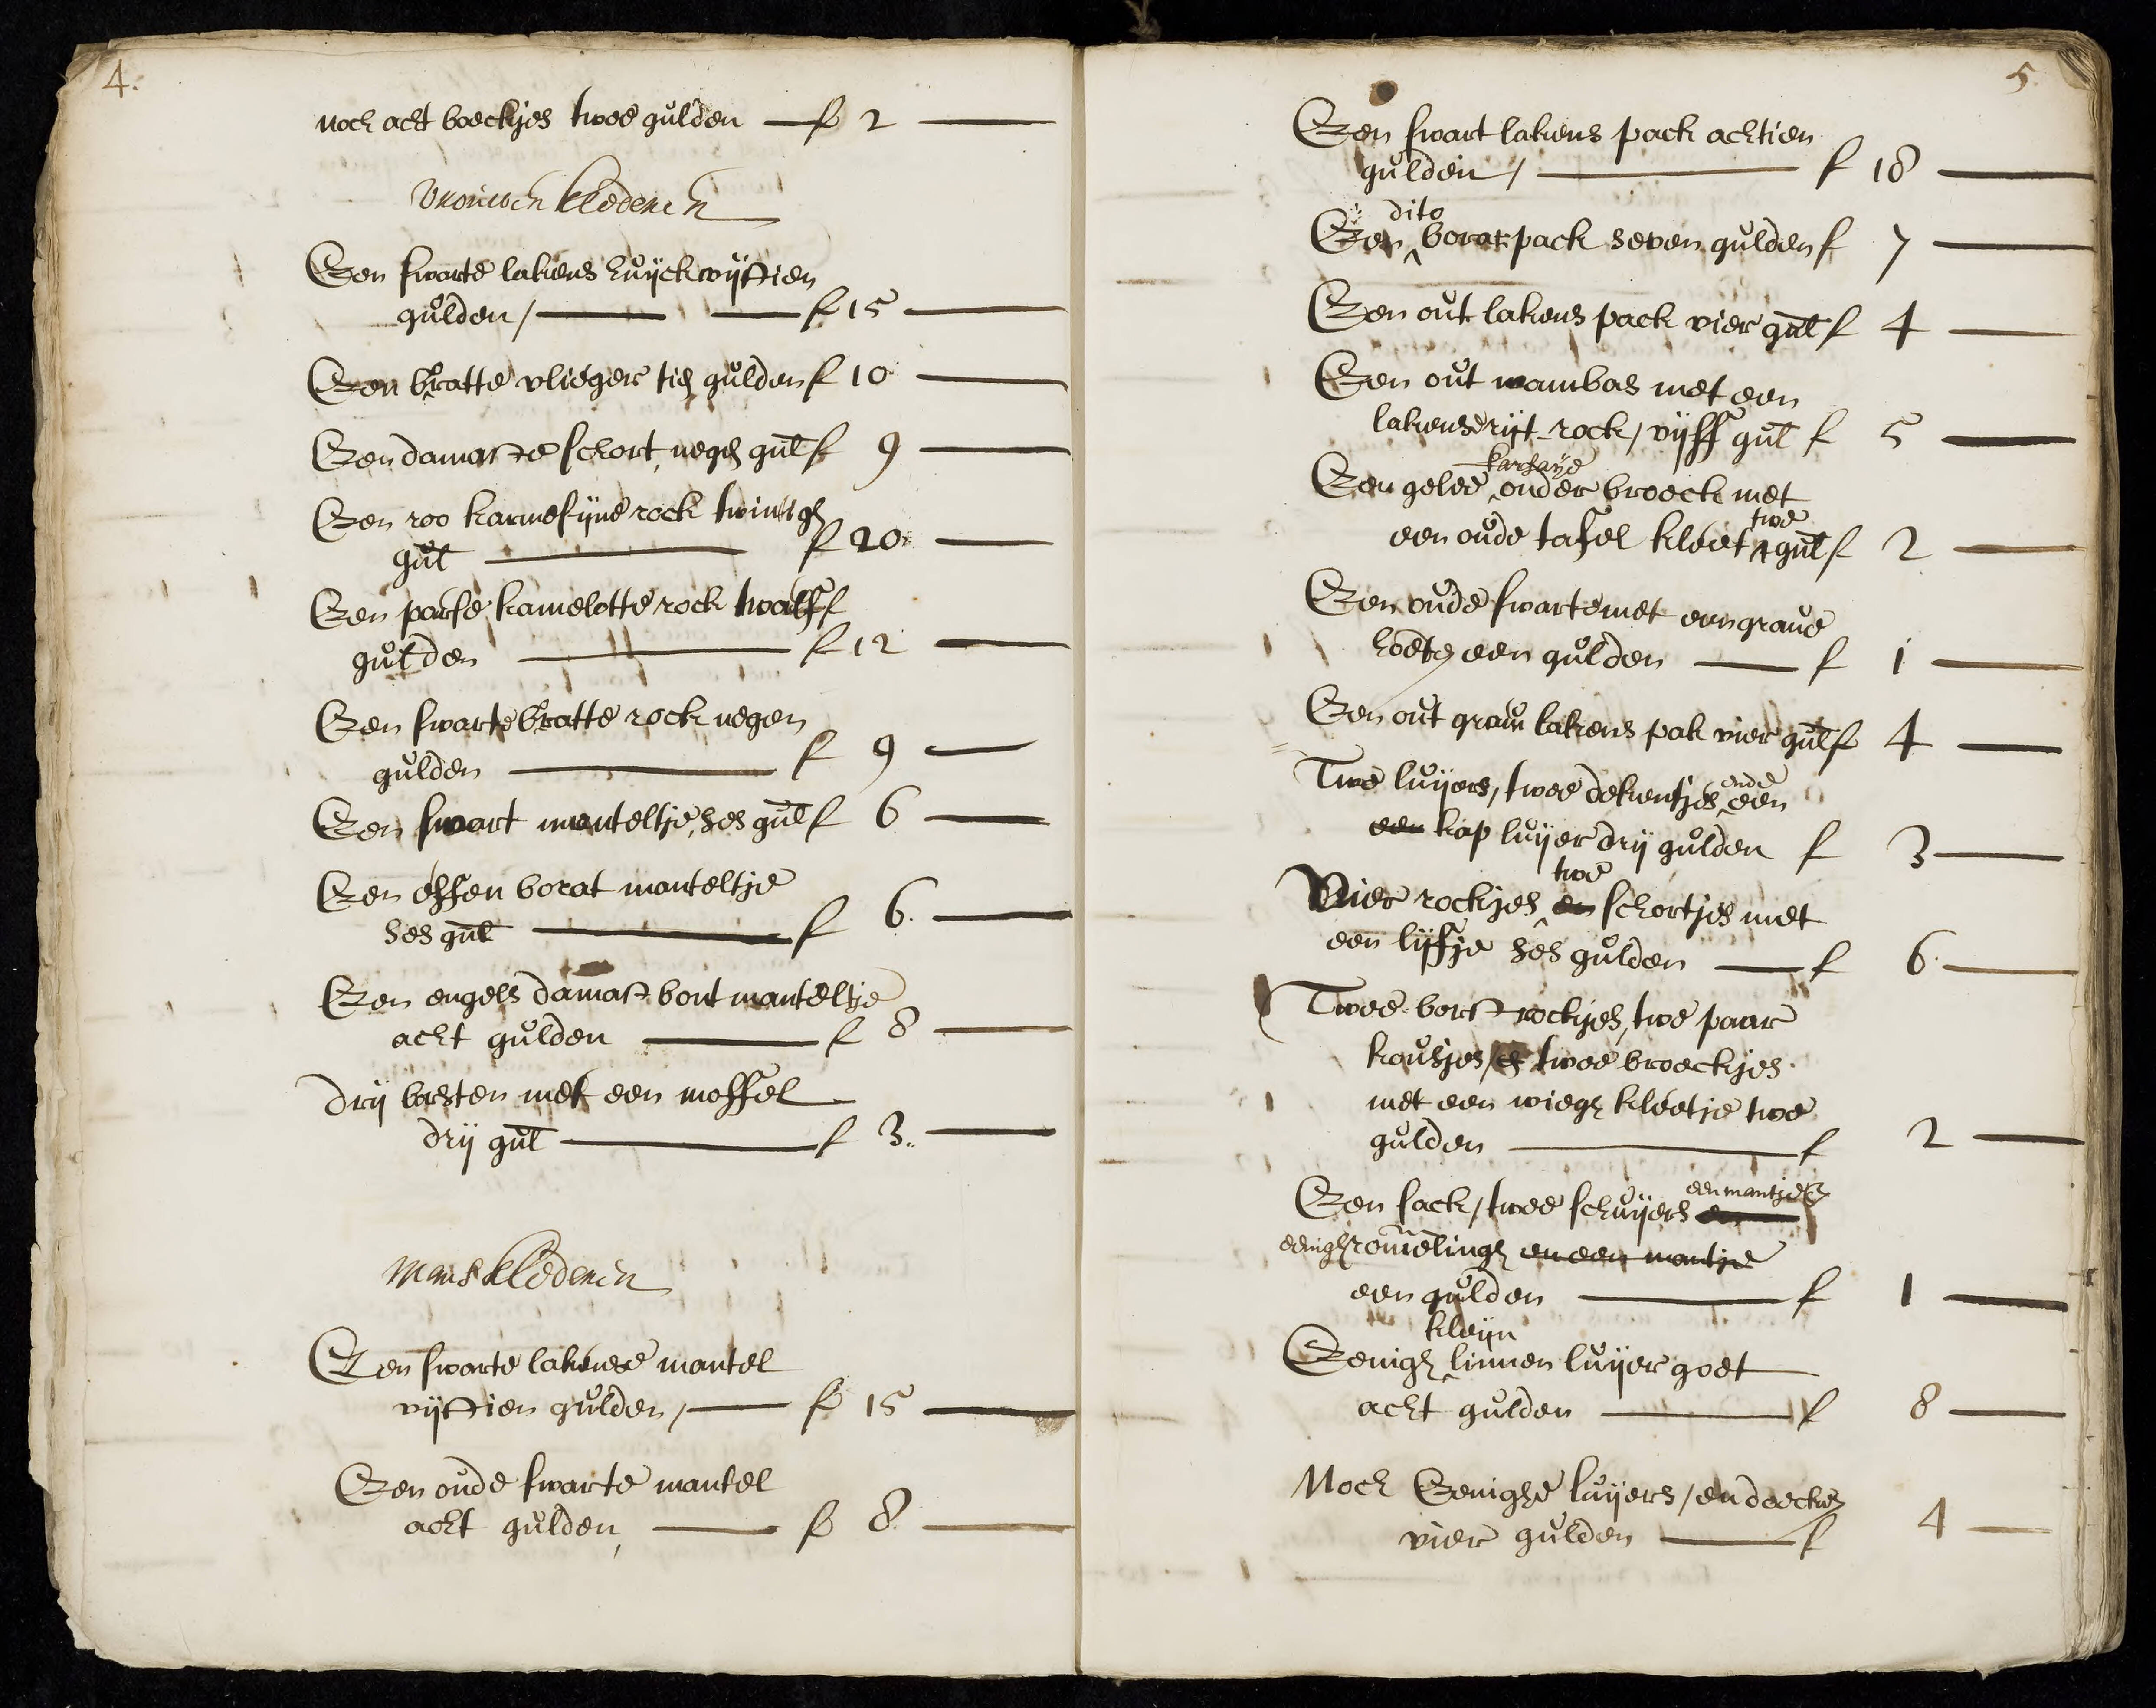 4.
noch acht boeckjes twee gulden — f 2 —
vrouwen klederen
Een swarte lakens huijck vijftien
gulden / — f 15 —
Een bratte vlieger tien gulden f 10 —
Een damaste schort, negen gul f 9 —
Een roo karmesijne rock twintigh
gul — f 20 —
Een parse kamelotte rock twalff
gulden — f 12 —
Een swarte bratte rock negen
gulden — f 9 —
Een swart manteltje, ses gul f 6 —
Een effen borat manteltje
ses gul — f 6. —
Een engels damast bont manteltje
acht gulden — f 8 —
drij borsten met een moffel
drij gul — f 3.. —
mans klederen
Een swarte lakense mantel
vijftien gulden / — f 15 —
Een oude swarte mantel
acht gulden, — f 8 —
5.
Een swart lakens pack achtien
gulden / — f 18 —
dito
Een borat pack seven gulden f 7 —
Een out lakens pack vier gul f 4 —
Een out wambas met een
lakense rijt-rock / vijff gul f 5 —
karsaije
Een gelee onder broeck met
twe
een oude tafel kleet gul f 2 —
Een oude swarte met een grauwe
hoet een gulden — f 1 —
Een out grauw lakens pak vier gul f 4 —
ende
Twe luijers, twee dekentjes een
een kap luijer drij gulden f 3 —
twe
Vier rockjes en schortjes met
een lijffje ses gulden — f 6. —
Twee borst rockjes, twe paar
kousjes / en twee broeckjes
met een wiegh kleetje twe
gulden — f 2 —
een mantje
Een sack / twee schuijers
eenigh romelingh en een mantje
een gulden — f 1 —
kleijn
Eenigh linnen luijer goet
acht gulden — f 8 —
Noch Eenighe luijers / en doecken
vier gulden — f 4 —